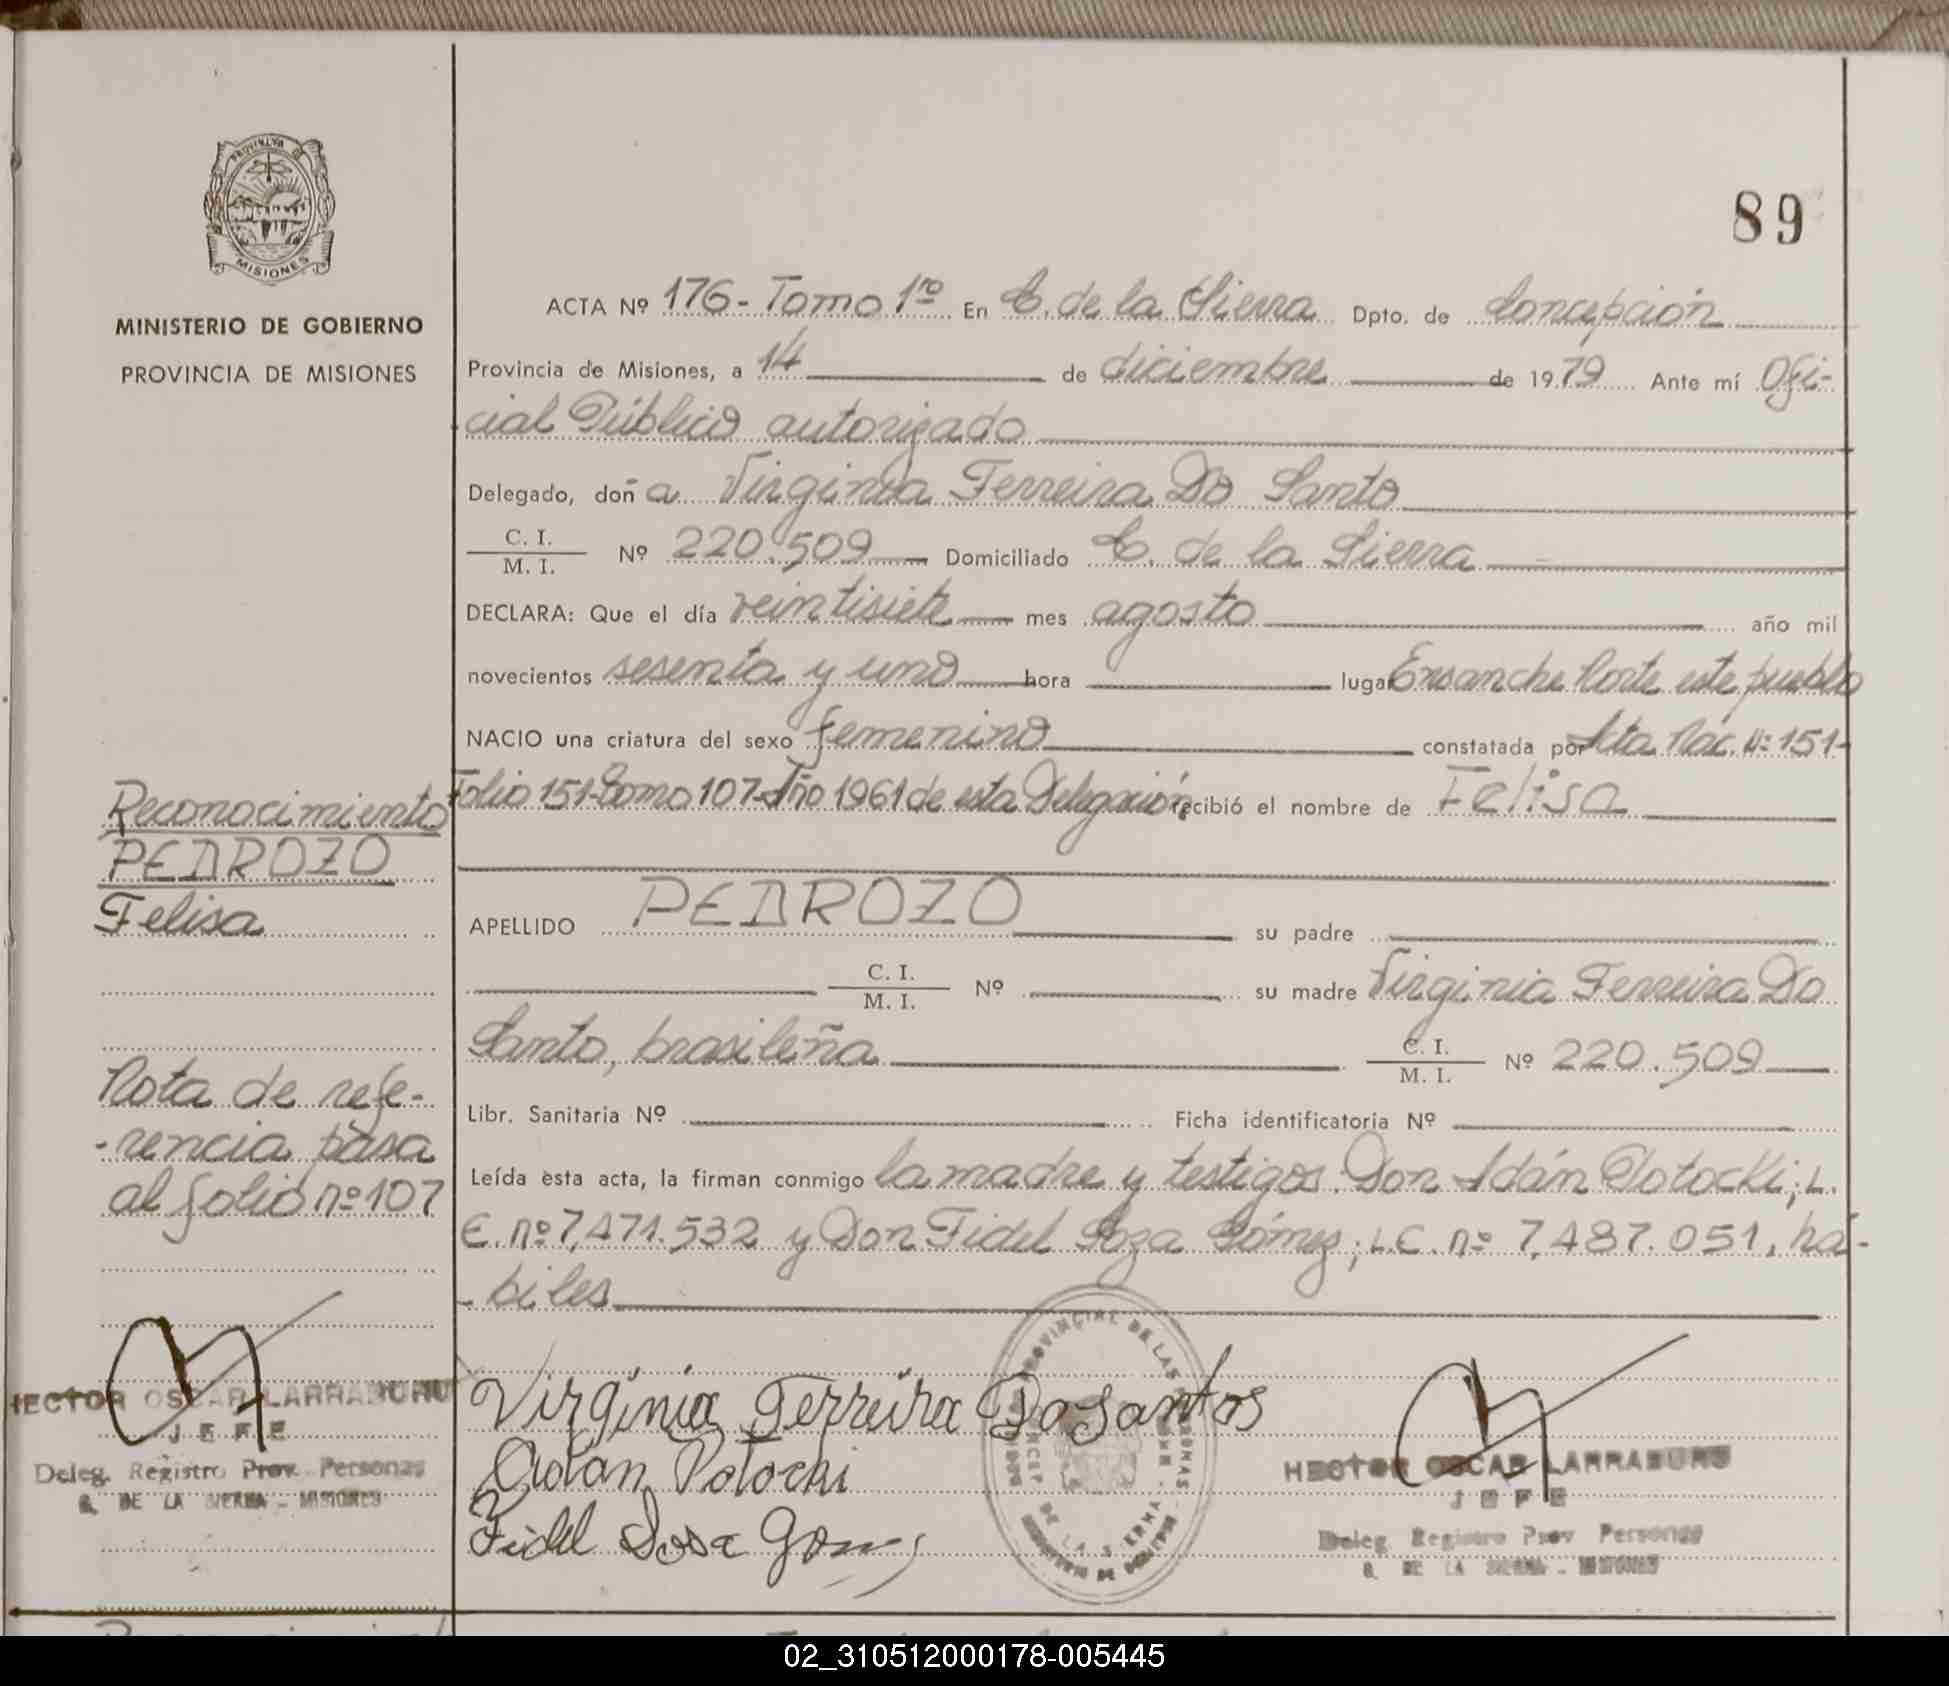 PROVINCIA DE
MISIONES
MINISTERIO DE GOBIERNO
PROVINCIA DE MISIONES
Reconocimiento
PEDROZO
Felisa
Nota de refe-
-rencia pasa
al folio nº 107
HECTOR OSCAR LARRABURU
JEFE
Deleg. Registro Prov. Personas
C. DE LA SIERRA - MISIONES
89
ACTA Nº 176- Tomo 1ro En C. de la Sierra Dpto. de Concepción
Provincia de Misiones, a 14 de diciembre de 1979 Ante mí Ofi-
cial Público autorizado
Delegado, don a Virginia Ferreira Do Santo
C. I.
M. I. Nº 220.509 Domiciliado C. de la Sierra
DECLARA: Que el día veintisiete mes agosto año mil
novecientos sesenta y uno hora lugar Ensanche Norte este pueblo
NACIO una criatura del sexo femenino constatada por Acta Nac. Nº 151-
Folio 151-Tomo 107-Año 1961 de esta Delegación, recibió el nombre de Felisa
APELLIDO PEDROZO su padre
C. I.
M. I. Nº su madre Virginia Ferreira Do
Santo, brasileña C. I.
M. I. Nº 220.509
Libr. Sanitaria Nº Ficha identificatoria Nº
Leída esta acta, la firman conmigo la madre y testigos: Don Adán Potocki; L.
E. nº 7,471.532 y Don Fidel Soza Gómez; L.E. nº 7,487.051, há-
-biles
Virginia Ferreira Do Santos
Adan Potochi
Fidel Sosa Gom
HECTOR OSCAR LARRABURU
JEFE
Deleg. Registro Prov. Personas
C. DE LA SIERRA - MISIONES
02_310512000178-005445